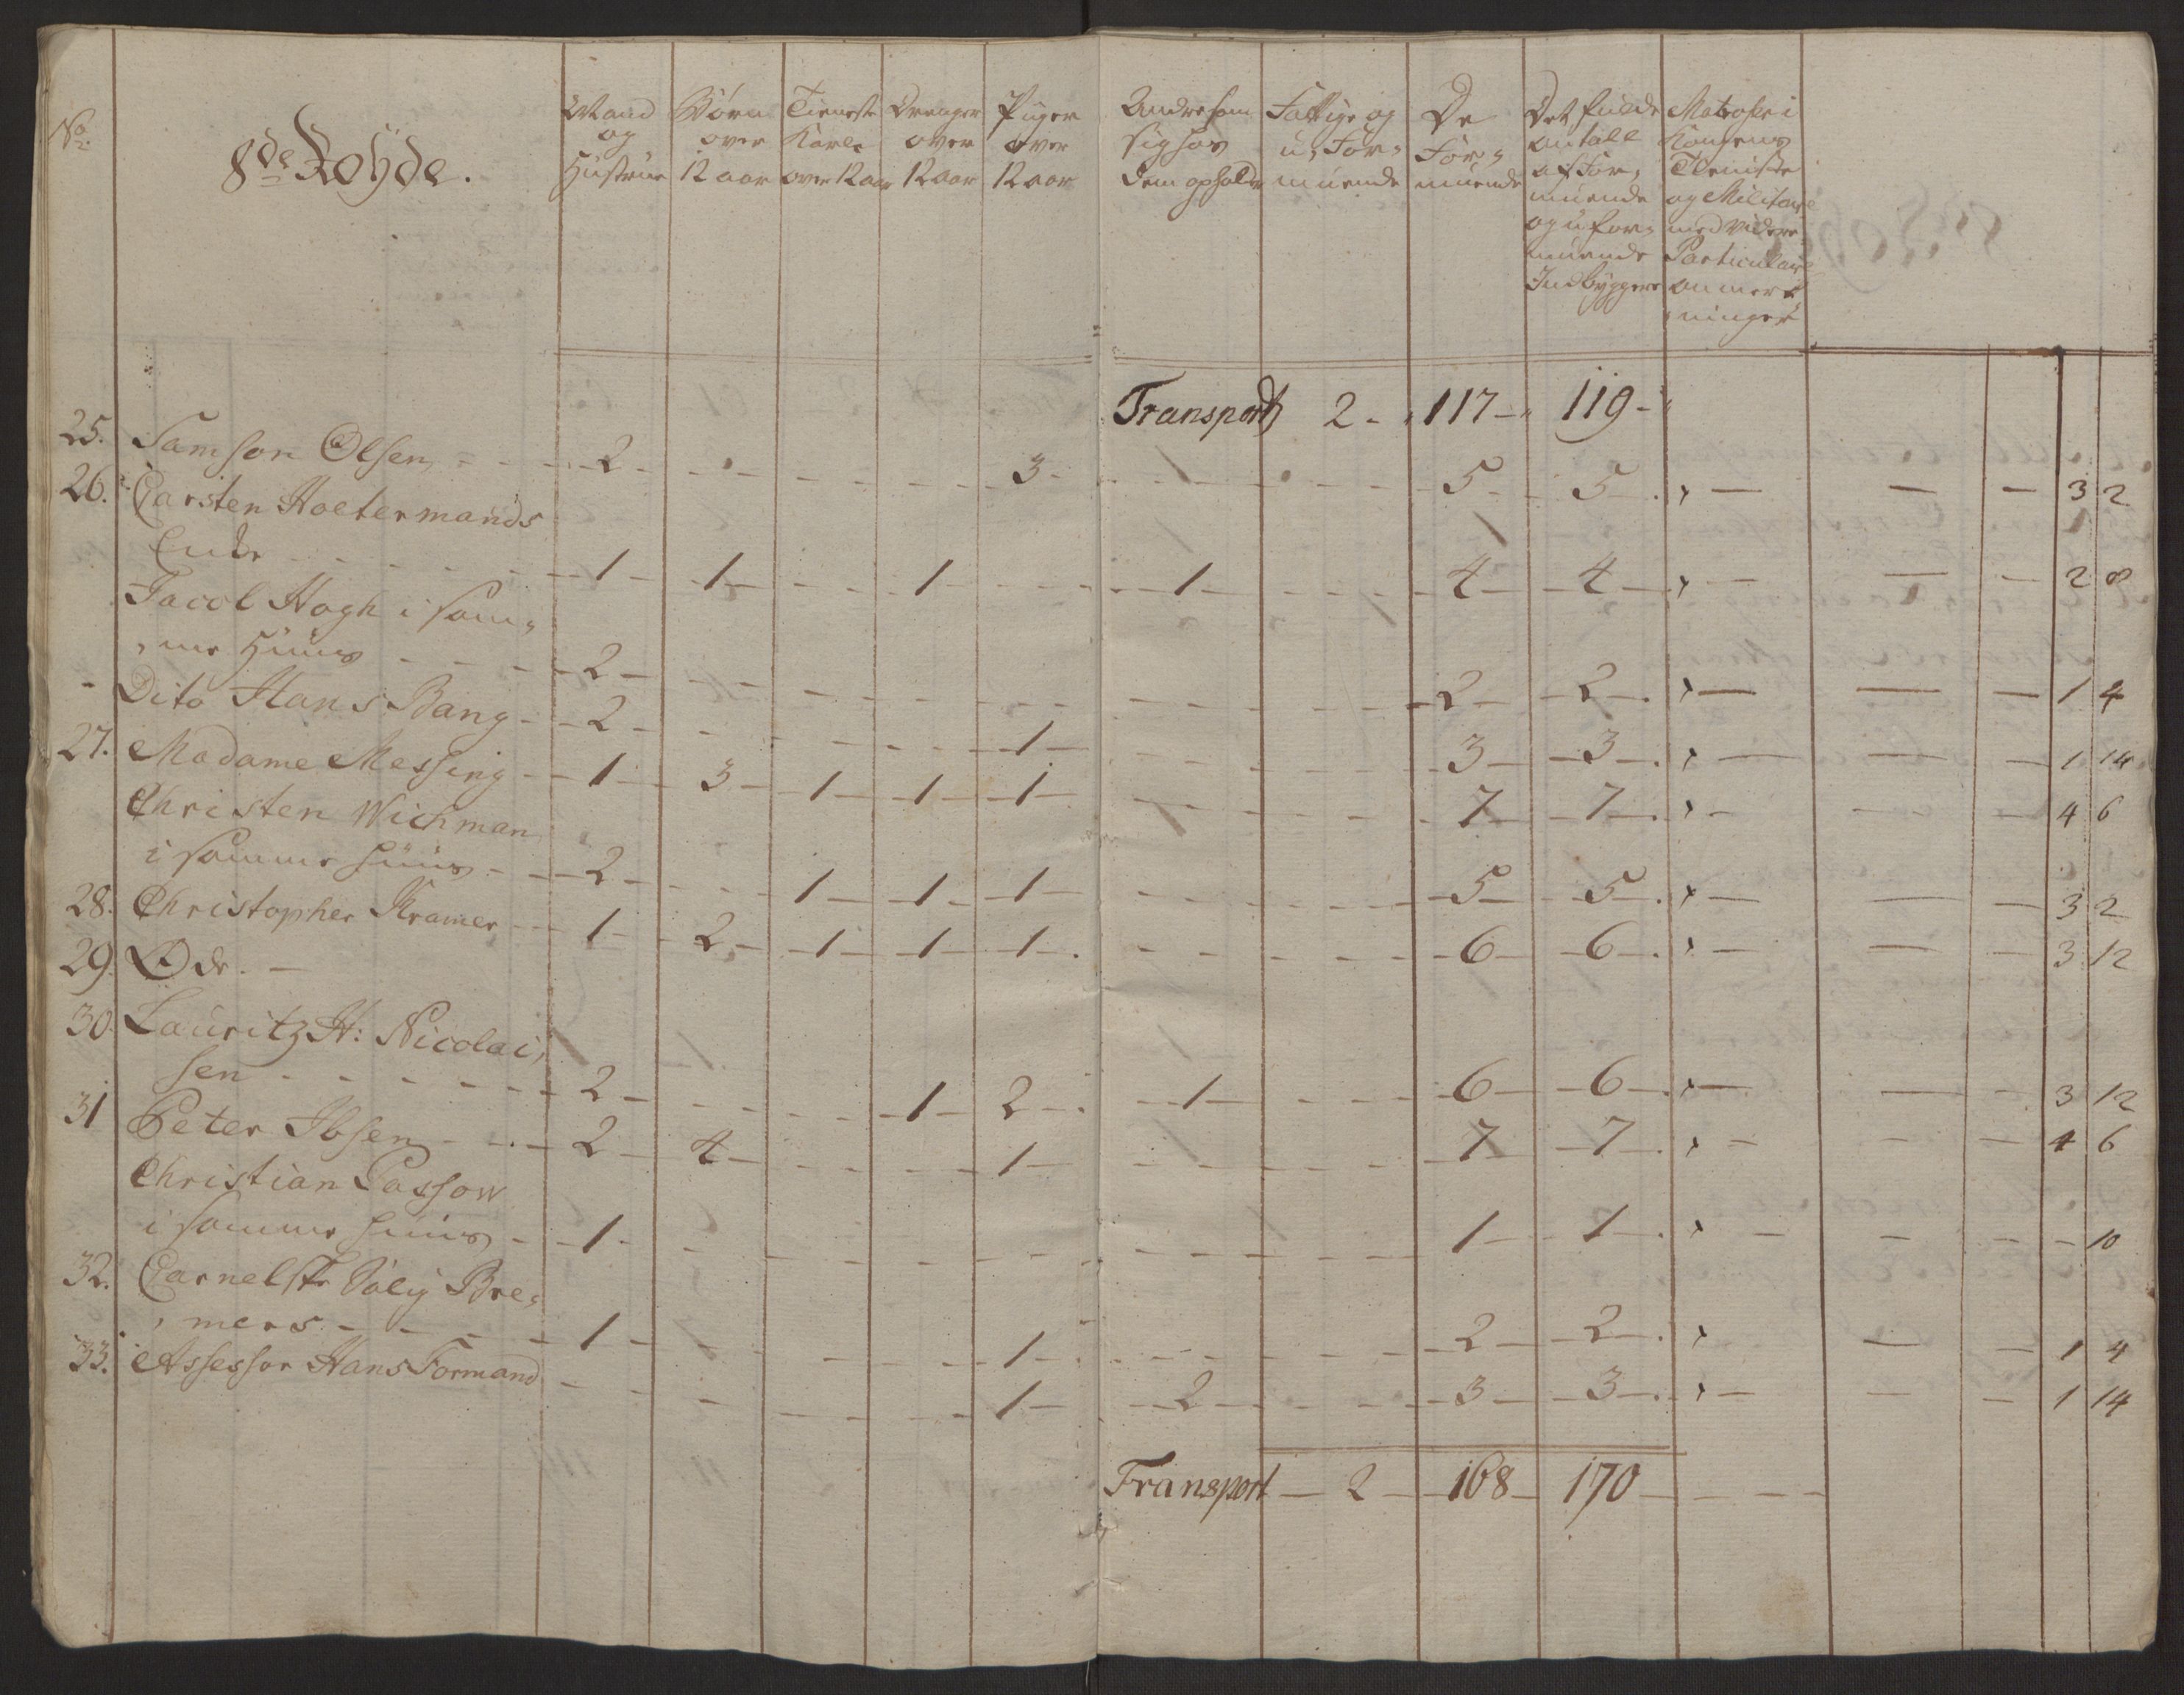 No
8de Rohde.
Mand og Hustrue
Børn over 12 aar
Tieneste Karle over 12 aar
Drenger over 12 aar
Piiger over 12 aar
Andre som sig hos dem opholder
Fattige og u, For, muende
De For, muende
Det fulde antall af For, muende og u for, muende Indbyggere
Matroser i Kongens Tieniste og Militaire med videre Particulaire anmerk, ninger
Transport 2 - 117 - 119 -
25. Samson Olsen - - 2 - - - - 3 - - - 5 - 5 - - - 3 2
26. Carsten Hoetermands
Enke - - - 1 - 1 - - 1 - - 1 - - 4 - 4 - - - 2 8
Jacob Hogh i sam,
, me Huus - - - 2 - - - - - - 2 - 2 - - - 1 4
- Dito Hans Bang - 2 - - - - 1 - - - 3 - 3 - - - 1 14
27. Madame Messing - 1 - 3 - 1 - 1 - 1 - - - 7 - 7 - - - 4 6
Christen Wichman
i samme huus - - 2 - - 1 - 1 - 1 - - - 5 - 5 - - - 3 2
28. Christopher Kramer - 1 - 2 - 1 - 1 - 1 - - - 6 - 6 - - - 3 12
29. Øde. -
30. Lauritz H: Nicolai,
sen - - - - 2 - - - 1 - 2 - 1 - - 6 - 6 - - - 3 12
31 Peter Ibsen - - 2 - 4 - - - 1 - - - 7 - 7 - - - 4 6
Christian Passow
i samme huus - 1 - - - - - - - 1 - 1 - - - 10
32. Carnelste Boley Bre,
, mers - - - - 1 - - - - 1 - - - 2 - 2 - - - 1 4
33. Assessor Hans Formand - - - - - 1 - 2 - - 3 - 3 - - - 1 14
Transport - 2 - 168 - 170 - - -